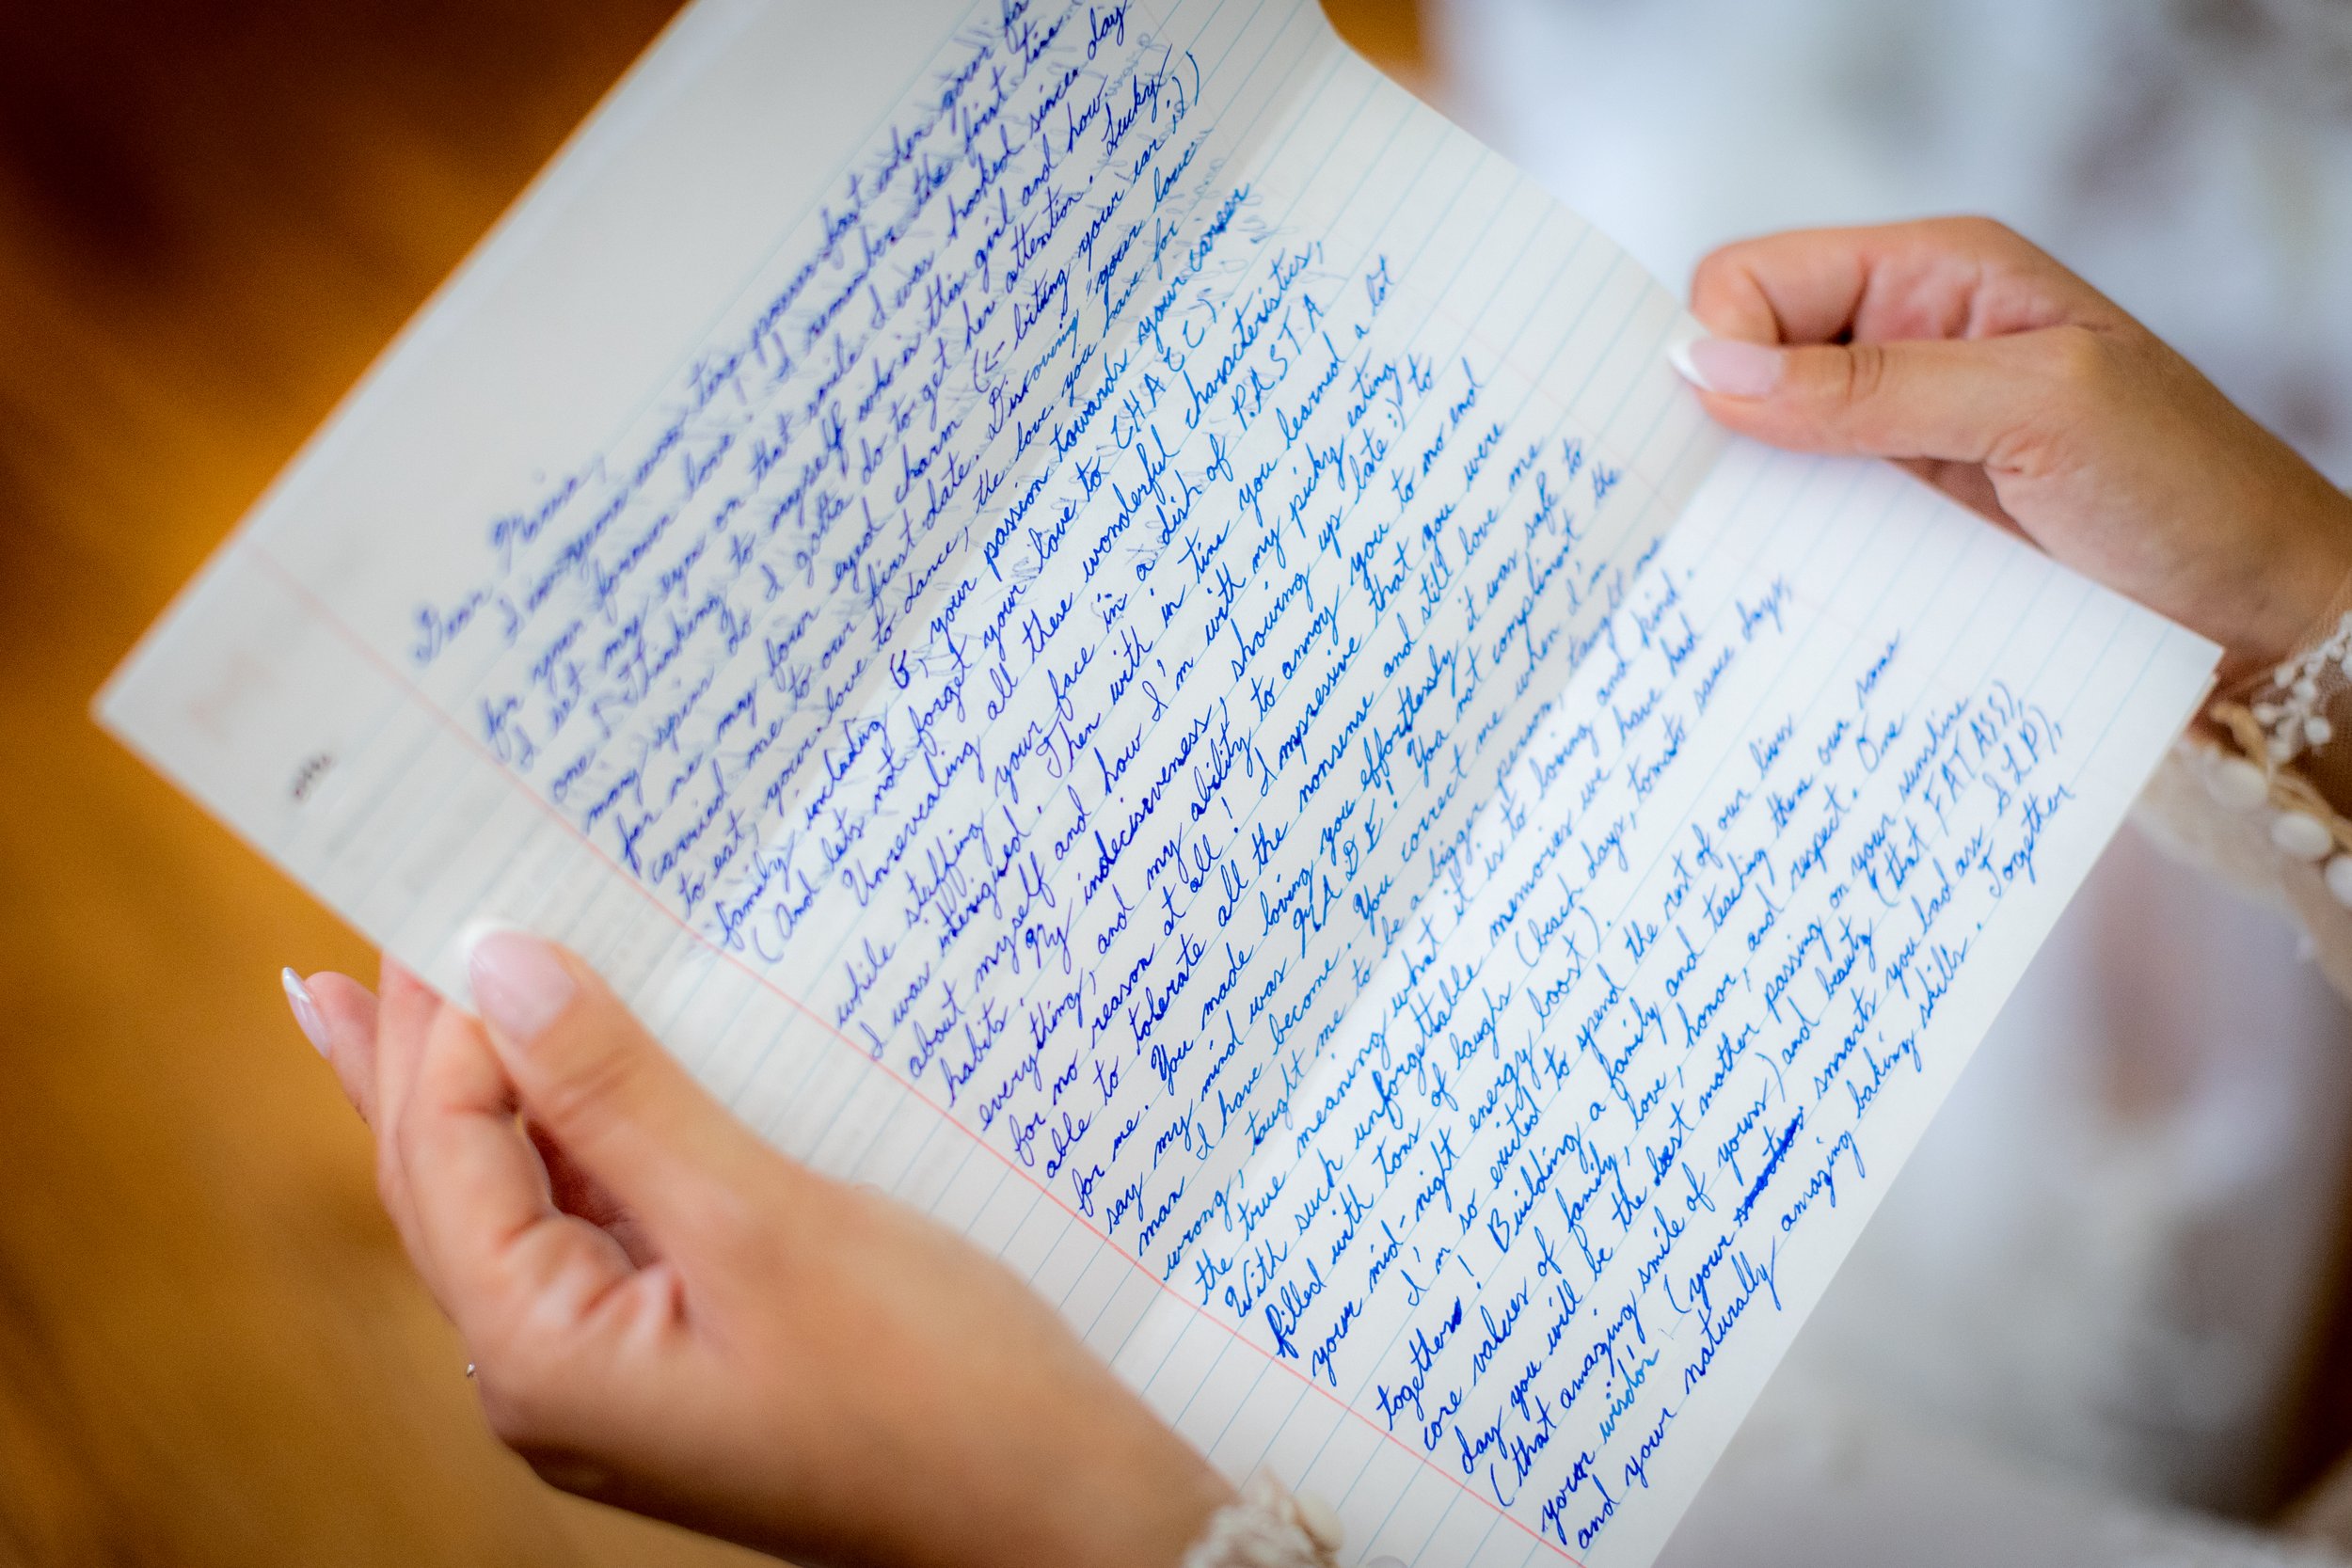 Dear
I
for your forever love! I remember the first time
I set my eyes on that smile. I was hooked since day
one I thinking to myself who is this girl and how
may spins do I gotta do to get her attention. Lucky
for me my four eyed charm (<- biting your ear is))
carried me to our first date. Discovering your love
to eat, your love to dance, the love you have for
family including G, your passion towards your career
(And lets not forget your love to CHA EE).
Unrevealing all these wonderful characteristics,
while stuffing your face in a dish of PASTA
I was intrigued. Then with in time you learned a lot
about myself and how I'm with my picky eating
habits. My indecisiveness, showing up late :) to
everything, and my ability to annoy you to no end
for no reason at all! Impressive that you were
able to tolerate all the nonsense and still love me
for me. You made loving you effortlessly it was safe to
say my mind was MADE! You not compliment the
man I have become. You correct me when I'm
wrong, taught me to be a bigger person, taught me
the true meaning what it is to loving and kind.
With such unforgettable memories we have had
filled with tons of laughs (beach days, tomato sauce days,
your mid-night energy boost).
I'm so excited to spend the rest of our lives
together! Building a family and teaching them our same
core values of family, love, honor, and respect. One
day you will be the best mother passing on your sunshine
(that amazing smile of yours) and beauty (that FATASS),
your wisdom! (your smarts you bad ass SLP),
and your naturally amazing baking skills. Together